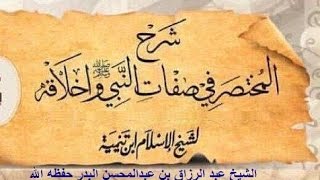 شرح
المختصر في صفات النبي ﷺ وأخلاقه
لشيخ الإسلام ابن تيمية
الشيخ عبد الرزاق بن عبدالمحسن البدر حفظه الله